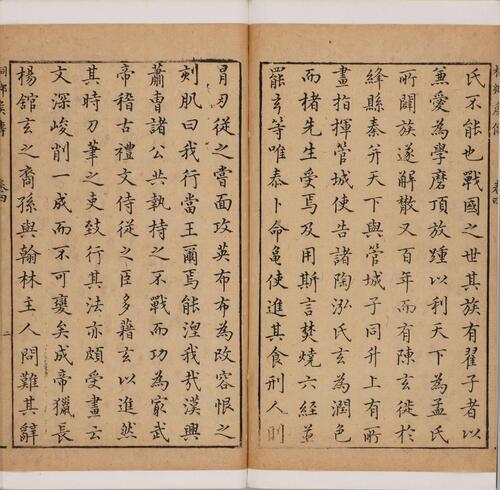 氏不能也戰國之世其族有翟子者以
兼愛為學磨頂放踵以利天下為孟氏
所闢族遂解散又百年而有陳玄徙於
絳縣秦并天下與管城子同升上有所
畫指揮管城使告諸陶泓氏玄為潤色
而楮先生受焉及用斯言焚燒六經並
罷玄等唯泰卜命龜使進其食刑人則
冐刃從之嘗面攻英布布為改容恨之
刻肌曰我行當王爾焉能涅我哉漢興
蕭曹諸公共執持之不戰而功為家武
帝稽古禮文侍從之臣多藉玄以進然
其時刀筆之吏鼓行其法亦頗受畫云
文深峻削一成而不可變矣成帝獵長
楊館玄之裔孫與翰林主人問難其辭
卷四
二